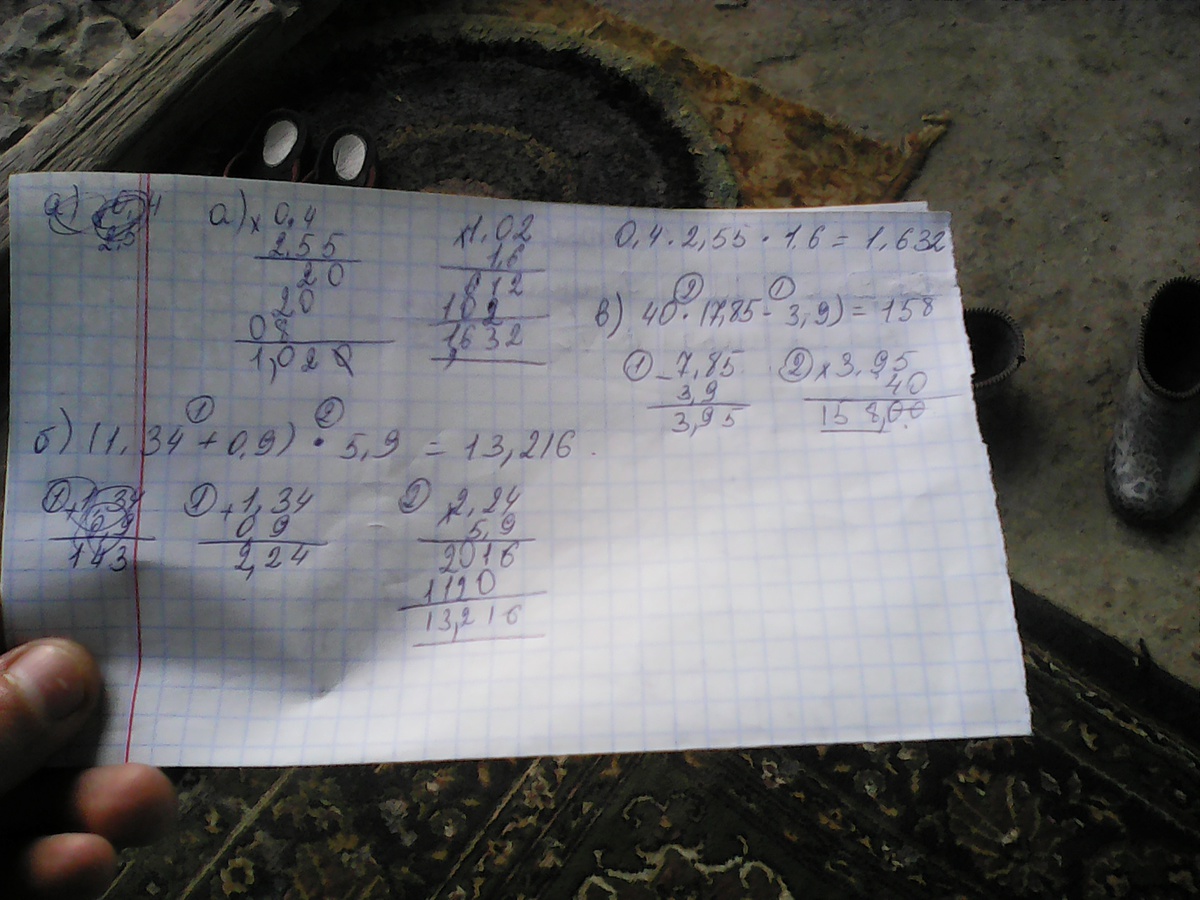 а) × 0,4
2,55
20
20
08
1,020
×1,02
1,6
612
102
1632
0,4 · 2,55 · 1,6 = 1,632
в) 40 · (7,85 - 3,9) = 158
② ①
① - 7,85
3,9
3,95
② × 3,95
40
158,00
① ②
б) (1,34 + 0,9) · 5,9 = 13,216
① + 1,34
143
① + 1,34
0 9
2,24
② × 2,24
5,9
2016
1120
13,216